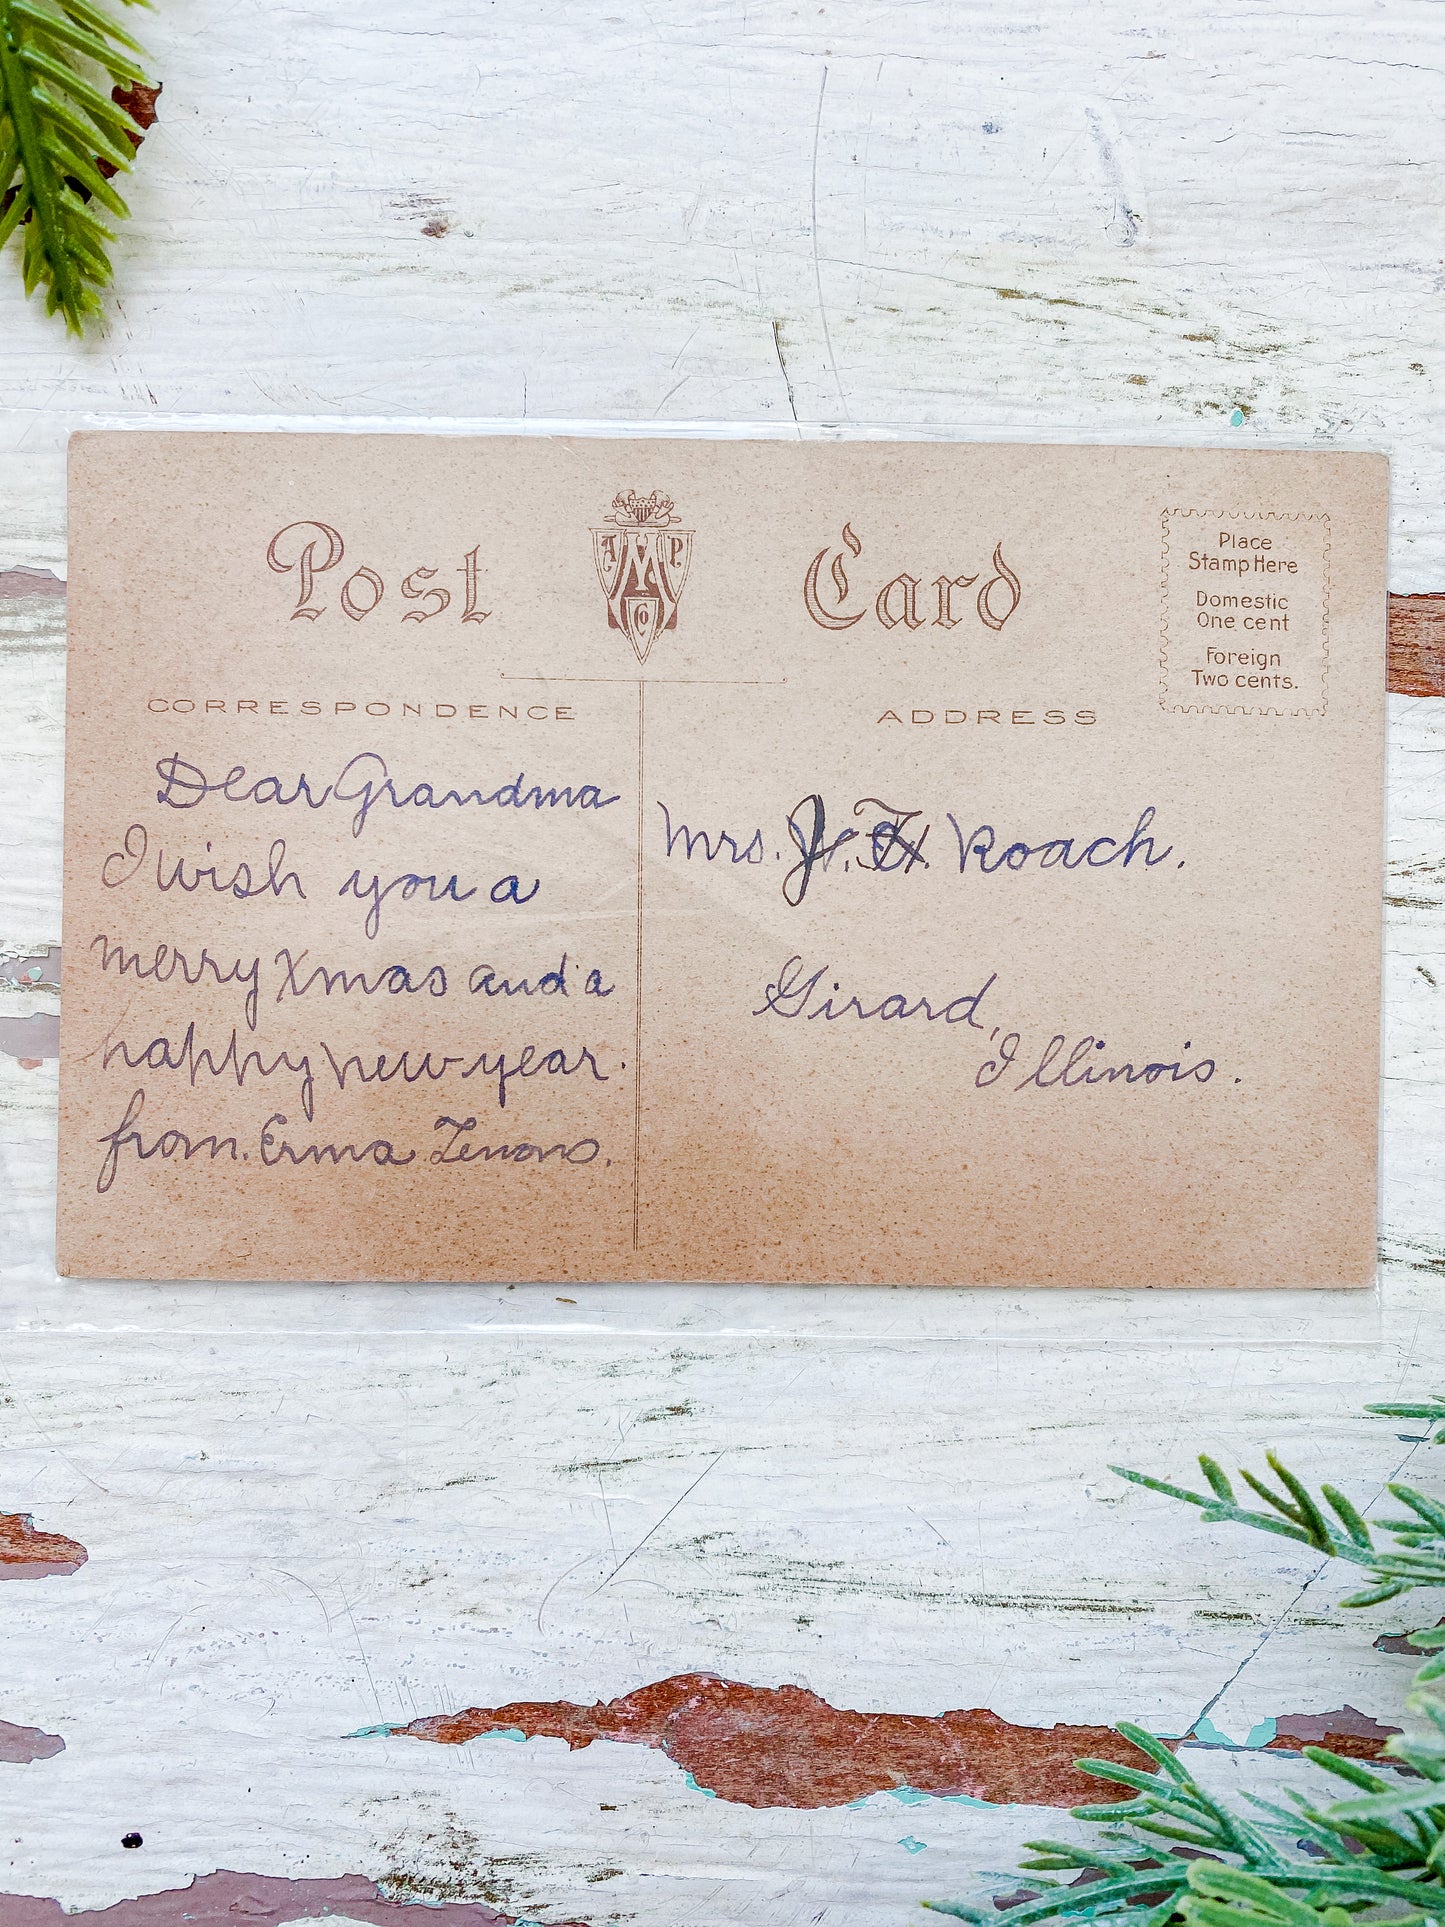 Post Card
A M P
Co
Place
Stamp Here
Domestic
One cent
Foreign
Two cents.
CORRESPONDENCE
ADDRESS
Dear Grandma
I wish you a
merry Xmas and a
happy new year.
from. Erma
Mrs. J. Roach.
Girard,
Illinois.